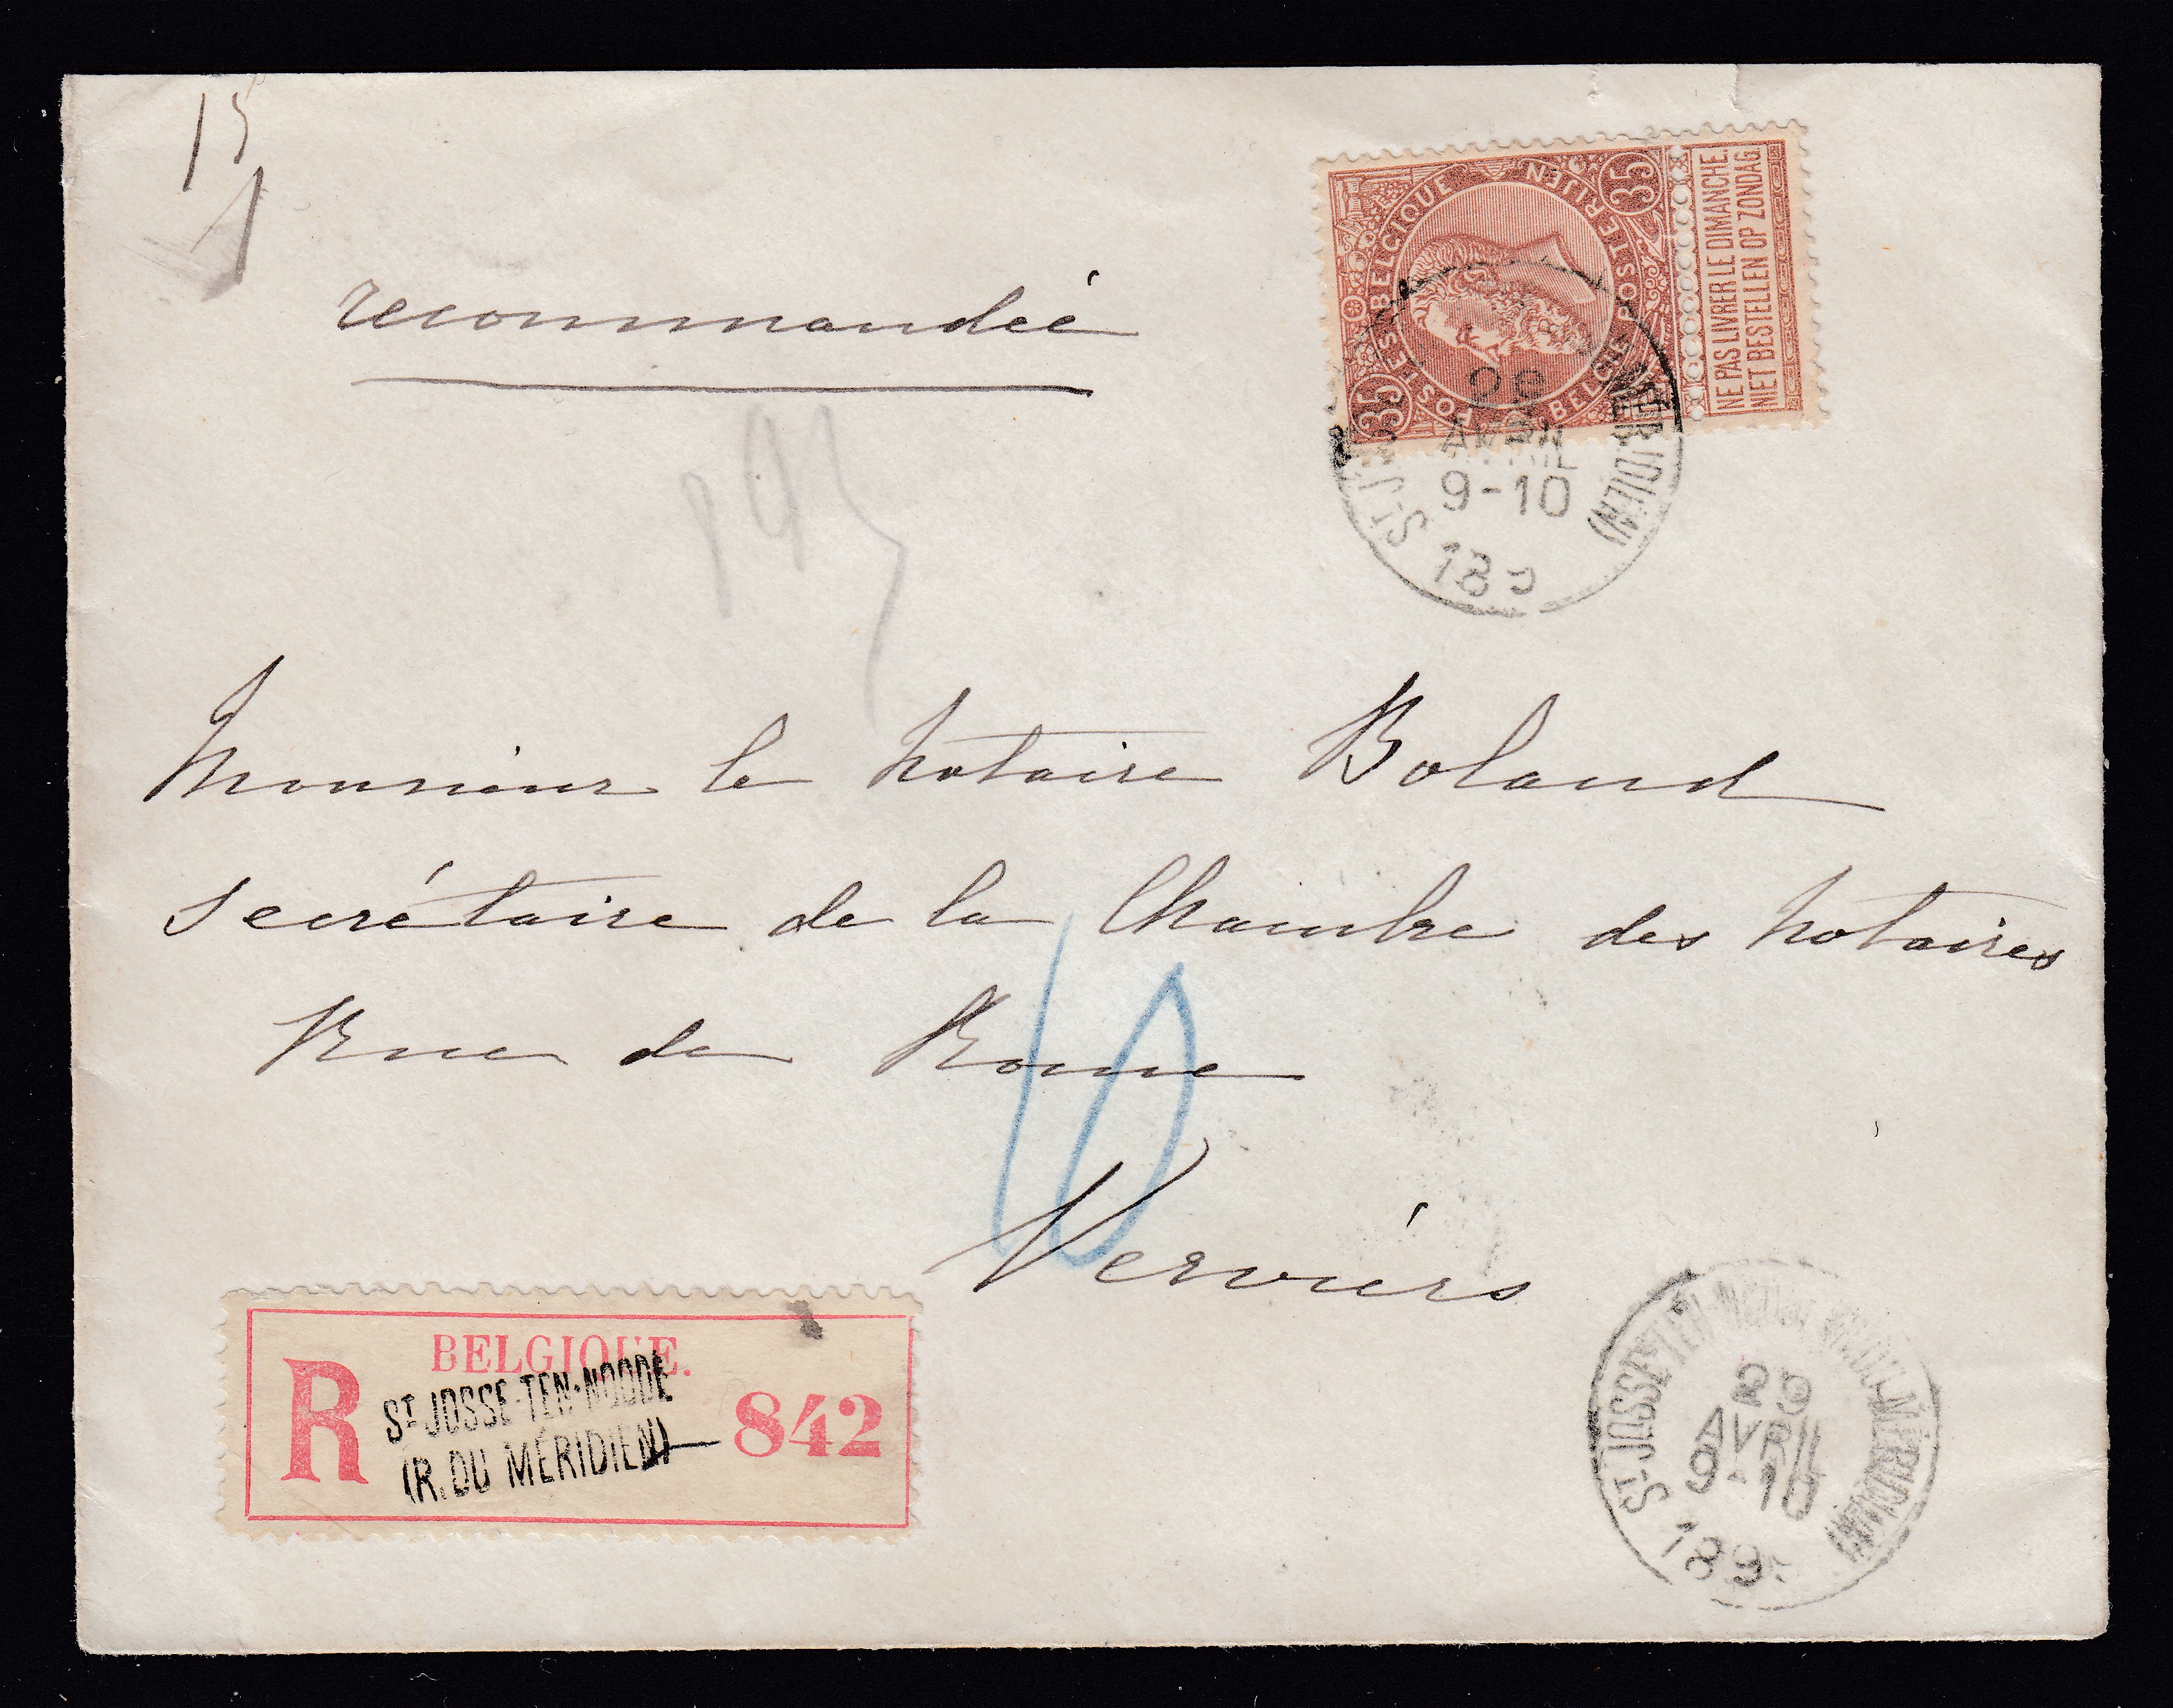 15
recommandée
POSTES BELGIQUE
BELGIE POSTERIJEN
35
35
NE PAS LIVRER LE DIMANCHE.
NIET BESTELLEN OP ZONDAG.
AVRIL
9-10
Monsieur le notaire Boland
secrétaire de la Chambre des notaires
Rue de Rome
10
Verviers
BELGIQUE.
R
ST JOSSE-TEN-NOODE
(R. DU MÉRIDIEN)
842
ST-JOSSE-TEN-NOODE (R. DU MÉRIDIEN)
29
AVRIL
9-10